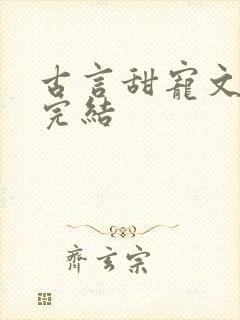 古言甜寵文
完結
齊玄宗